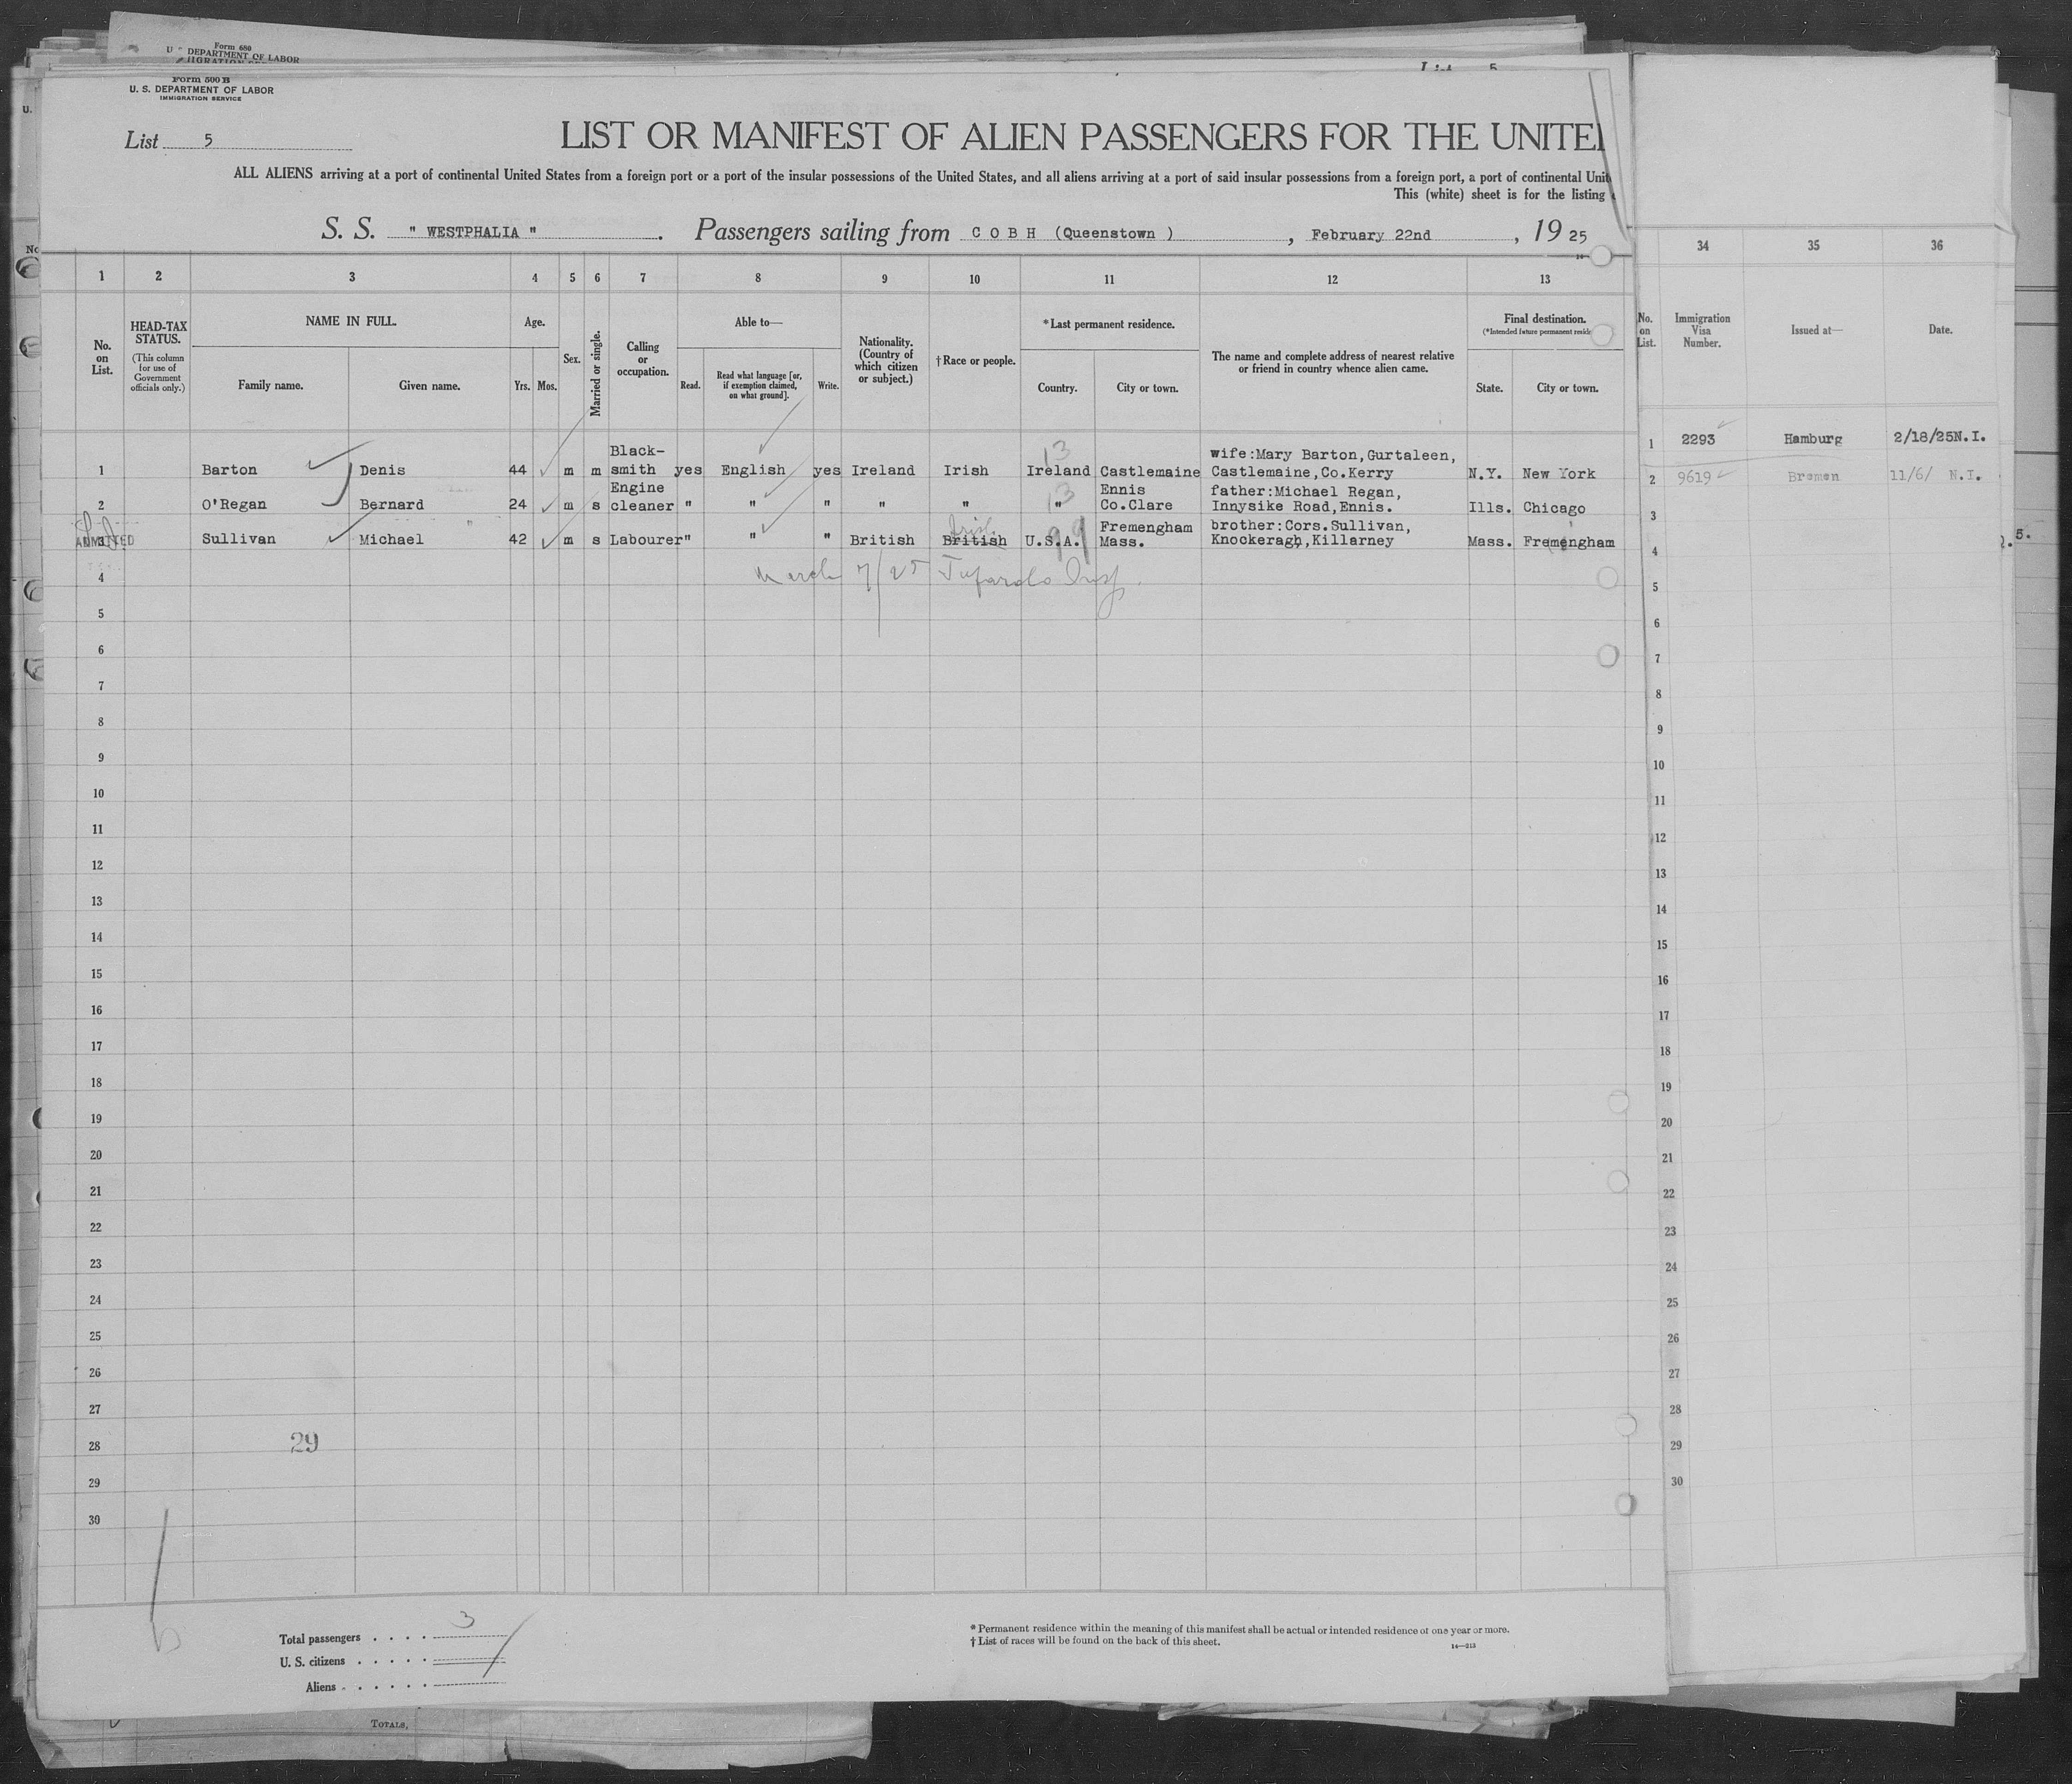 Form 680
U. S. DEPARTMENT OF LABOR
Form 500 B
U. S. DEPARTMENT OF LABOR
IMMIGRATION SERVICE
List 5
LIST OR MANIFEST OF ALIEN PASSENGERS FOR THE UNITE
ALL ALIENS arriving at a port of continental United States from a foreign port or a port of the insular possessions of the United States, and all aliens arriving at a port of said insular possessions from a foreign port, a port of continental Unit
This (white) sheet is for the listing
S. S. " WESTPHALIA ". Passengers sailing from C O B H (Queenstown ), February 22nd, 19 25
1 2 3 4 5 6 7 8 9 10 11 12 13 34 35 36
No. on List.
HEAD-TAX STATUS.
(This column for use of Government officials only.)
NAME IN FULL.
Family name. Given name.
Age.
Yrs. Mos.
Sex.
Married or single.
Calling or occupation.
Able to—
Read. Read what language [or, if exemption claimed, on what ground]. Write.
Nationality. (Country of which citizen or subject.)
†Race or people.
*Last permanent residence.
Country. City or town.
The name and complete address of nearest relative or friend in country whence alien came.
Final destination.
(*Intended future permanent
State. City or town.
No. on List.
Immigration Visa Number.
Issued at—
Date.
1 Barton Denis 44 m m Black-smith yes English yes Ireland Irish 13 Ireland Castlemaine wife:Mary Barton,Gurtaleen, Castlemaine,Co.Kerry N.Y. New York
1 2293 Hamburg 2/18/25N.I.
2 O'Regan Bernard 24 m s Engine cleaner " " " " " 13 " Ennis Co.Clare father:Michael Regan, Innysike Road,Ennis. Ills. Chicago
2 9619 Bremen 11/6/ N.I.
ADMITTED
3 Sullivan Michael 42 m s Labourer " " " British Irish British U.S.A. 99 Fremengham Mass. brother:Cors.Sullivan, Knockeragh,Killarney Mass. Fremengham
3
4 March 7/25 Insp.
4
5
5
6
6
7
7
8
8
9
9
10
10
11
11
12
12
13
13
14
14
15
15
16
16
17
17
18
18
19
19
20
20
21
21
22
22
23
23
24
24
25
25
26
26
27
27
28 29
28
29
29
30
30
Total passengers . . . . 3
U. S. citizens . . . . .
Aliens . . . . . .
* Permanent residence within the meaning of this manifest shall be actual or intended residence of one year or more.
† List of races will be found on the back of this sheet.
14—213
TOTALS,